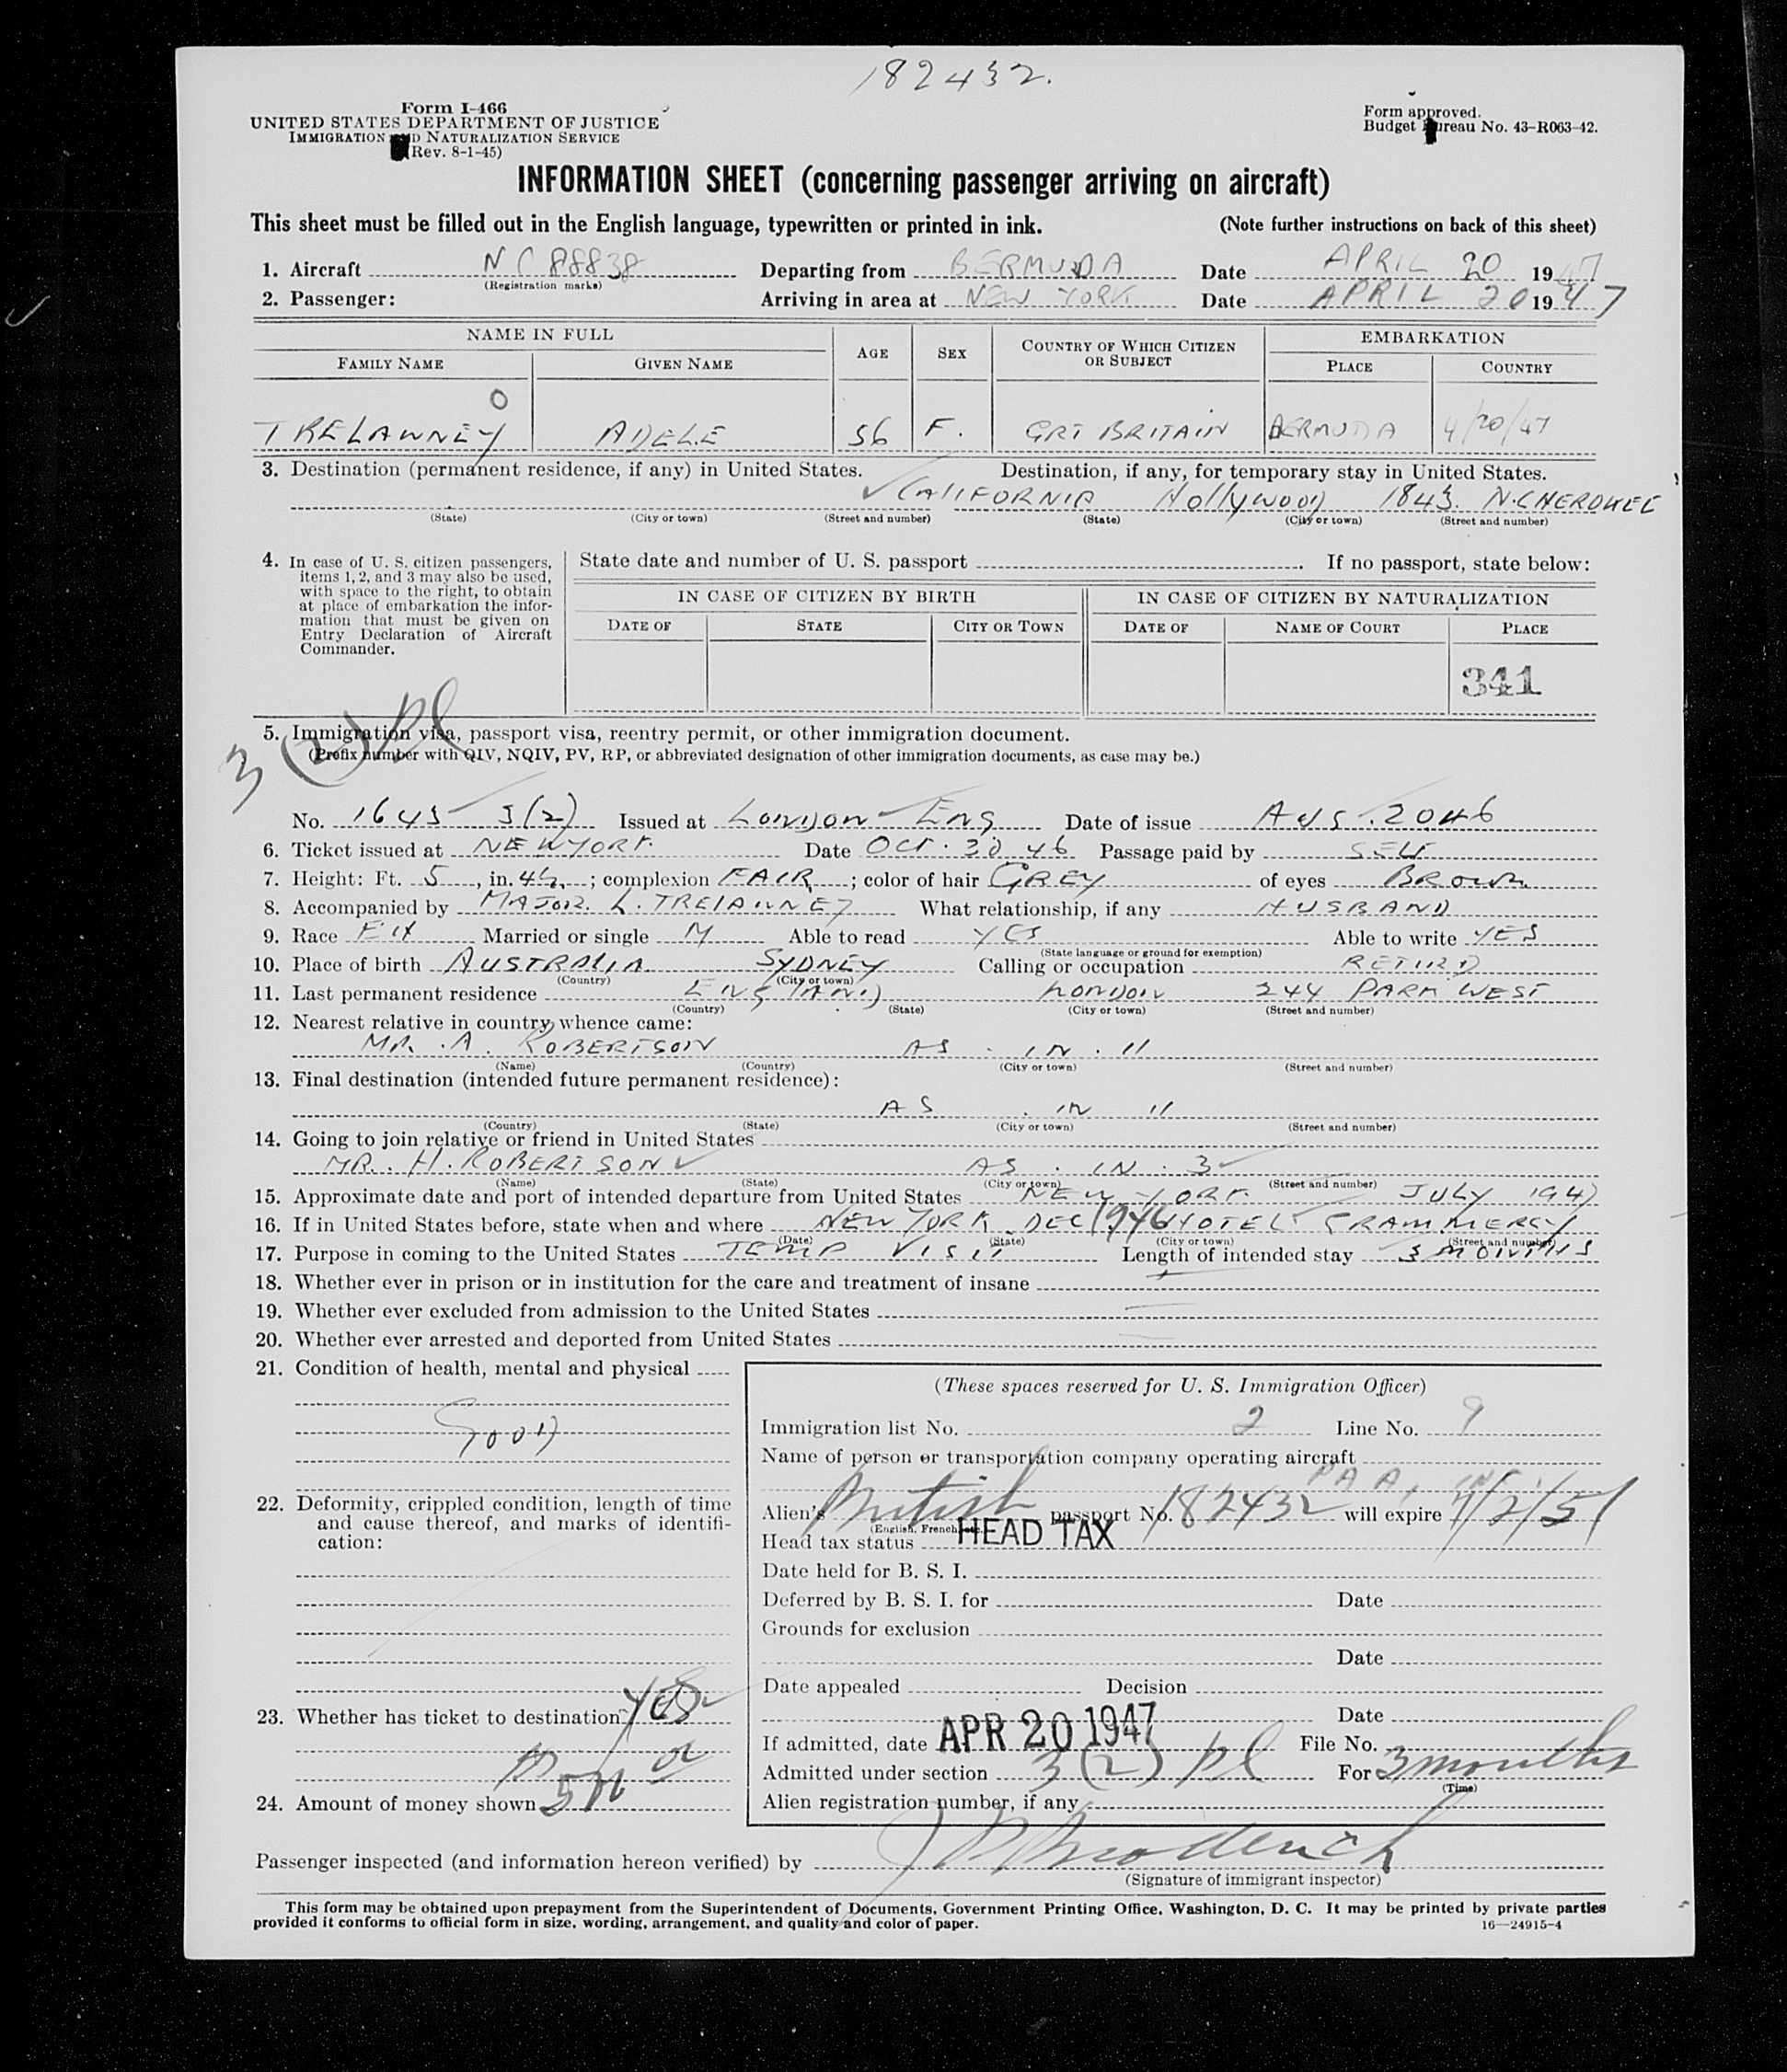 182432.
Form I-466
UNITED STATES DEPARTMENT OF JUSTICE
IMMIGRATION AND NATURALIZATION SERVICE
(Rev. 8-1-45)
Form approved.
Budget Bureau No. 43-R063-42.
INFORMATION SHEET (concerning passenger arriving on aircraft)
This sheet must be filled out in the English language, typewritten or printed in ink. (Note further instructions on back of this sheet)
1. Aircraft NC 88838 Departing from BERMUDA Date APRIL 20 1947
(Registration marks)
2. Passenger: Arriving in area at NEW YORK Date APRIL 20 1947
NAME IN FULL AGE SEX COUNTRY OF WHICH CITIZEN OR SUBJECT EMBARKATION
FAMILY NAME GIVEN NAME PLACE COUNTRY
0
TRELAWNEY ADELE 56 F. GRT BRITAIN BERMUDA 4/20/47
3. Destination (permanent residence, if any) in United States. Destination, if any, for temporary stay in United States.
CALIFORNIA Hollywood 1843 N. CHEROKEE
(State) (City or town) (Street and number) (State) (City or town) (Street and number)
4. In case of U. S. citizen passengers, items 1, 2, and 3 may also be used, with space to the right, to obtain at place of embarkation the information that must be given on Entry Declaration of Aircraft Commander.
State date and number of U. S. passport . If no passport, state below:
IN CASE OF CITIZEN BY BIRTH IN CASE OF CITIZEN BY NATURALIZATION
DATE OF STATE CITY OR TOWN DATE OF NAME OF COURT PLACE
341
3 (2) Pl
5. Immigration visa, passport visa, reentry permit, or other immigration document.
(Prefix number with QIV, NQIV, PV, RP, or abbreviated designation of other immigration documents, as case may be.)
No. 1645 3(2) Issued at LONDON ENG. Date of issue AUG. 20 46
6. Ticket issued at NEW YORK Date OCT. 30 46 Passage paid by SELF
7. Height: Ft. 5, in. 4½; complexion FAIR; color of hair GREY of eyes BROWN
8. Accompanied by MAJOR. L. TRELAWNEY What relationship, if any HUSBAND
9. Race Married or single M Able to read YES Able to write YES
(State language or ground for exemption)
10. Place of birth AUSTRALIA SYDNEY Calling or occupation RETIRED
(Country) (City or town)
11. Last permanent residence ENGLAND LONDON 244 PARK WEST
(Country) (State) (City or town) (Street and number)
12. Nearest relative in country whence came:
MR. A. ROBERTSON AS . IN . 11
(Name) (Country) (City or town) (Street and number)
13. Final destination (intended future permanent residence):
AS . IN 11
(Country) (State) (City or town) (Street and number)
14. Going to join relative or friend in United States
MR. H. ROBERTSON AS . IN . 3
(Name) (State) (City or town) (Street and number)
15. Approximate date and port of intended departure from United States NEW YORK JULY 1947
16. If in United States before, state when and where NEW YORK DEC 1946 HOTEL GRAMMERCY
(Date) (State) (City or town) (Street and number)
17. Purpose in coming to the United States TEMP VISIT Length of intended stay 3 MONTHS
18. Whether ever in prison or in institution for the care and treatment of insane
19. Whether ever excluded from admission to the United States
20. Whether ever arrested and deported from United States
21. Condition of health, mental and physical
GOOD
22. Deformity, crippled condition, length of time and cause thereof, and marks of identification:
23. Whether has ticket to destination yes
24. Amount of money shown
(These spaces reserved for U. S. Immigration Officer)
Immigration list No. 2 Line No. 9
Name of person or transportation company operating aircraft
PAA,
Alien's British passport No. 182432 will expire 4/2/51
(English, French, etc.)
Head tax status HEAD TAX
Date held for B. S. I.
Deferred by B. S. I. for Date
Grounds for exclusion
Date
Date appealed Decision
Date
If admitted, date APR 20 1947 File No.
Admitted under section 3 (2) pl For 3 months
(Time)
Alien registration number, if any
Passenger inspected (and information hereon verified) by
(Signature of immigrant inspector)
This form may be obtained upon prepayment from the Superintendent of Documents, Government Printing Office, Washington, D. C. It may be printed by private parties
provided it conforms to official form in size, wording, arrangement, and quality and color of paper. 16—24915-4